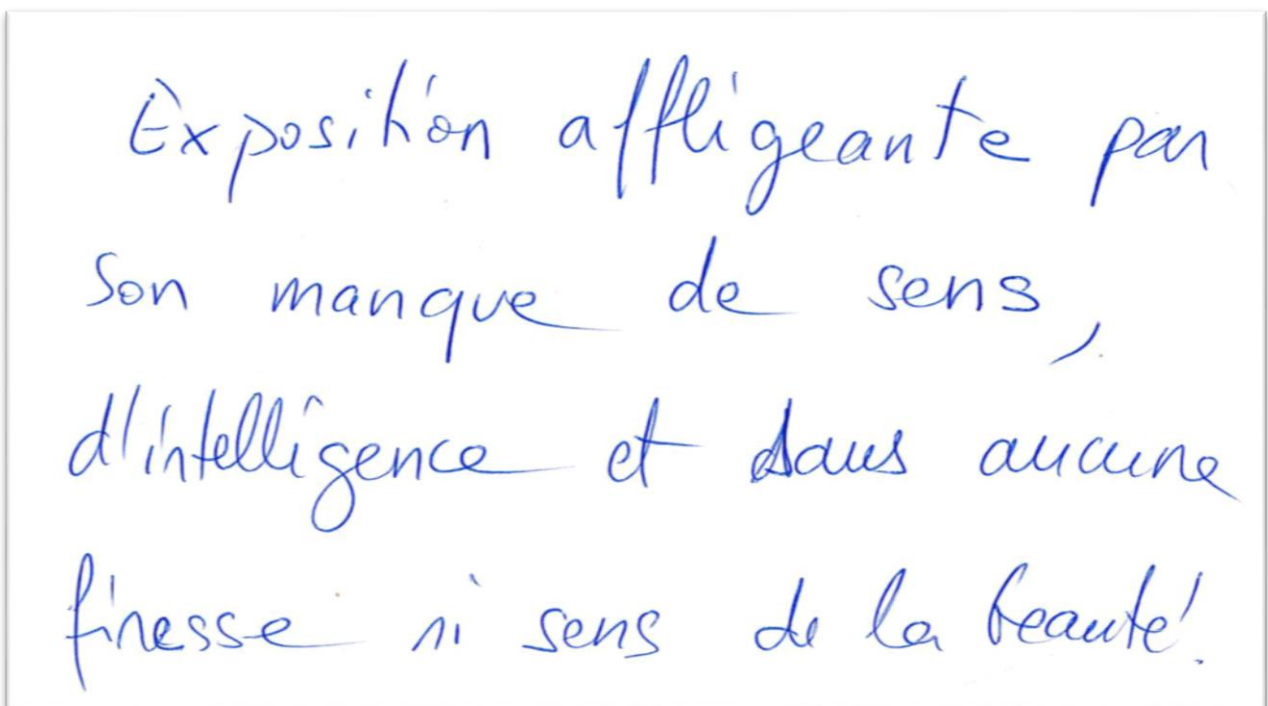 Exposition affligeante par
son manque de sens,
d'intelligence et sans aucune
finesse ni sens de la beauté.